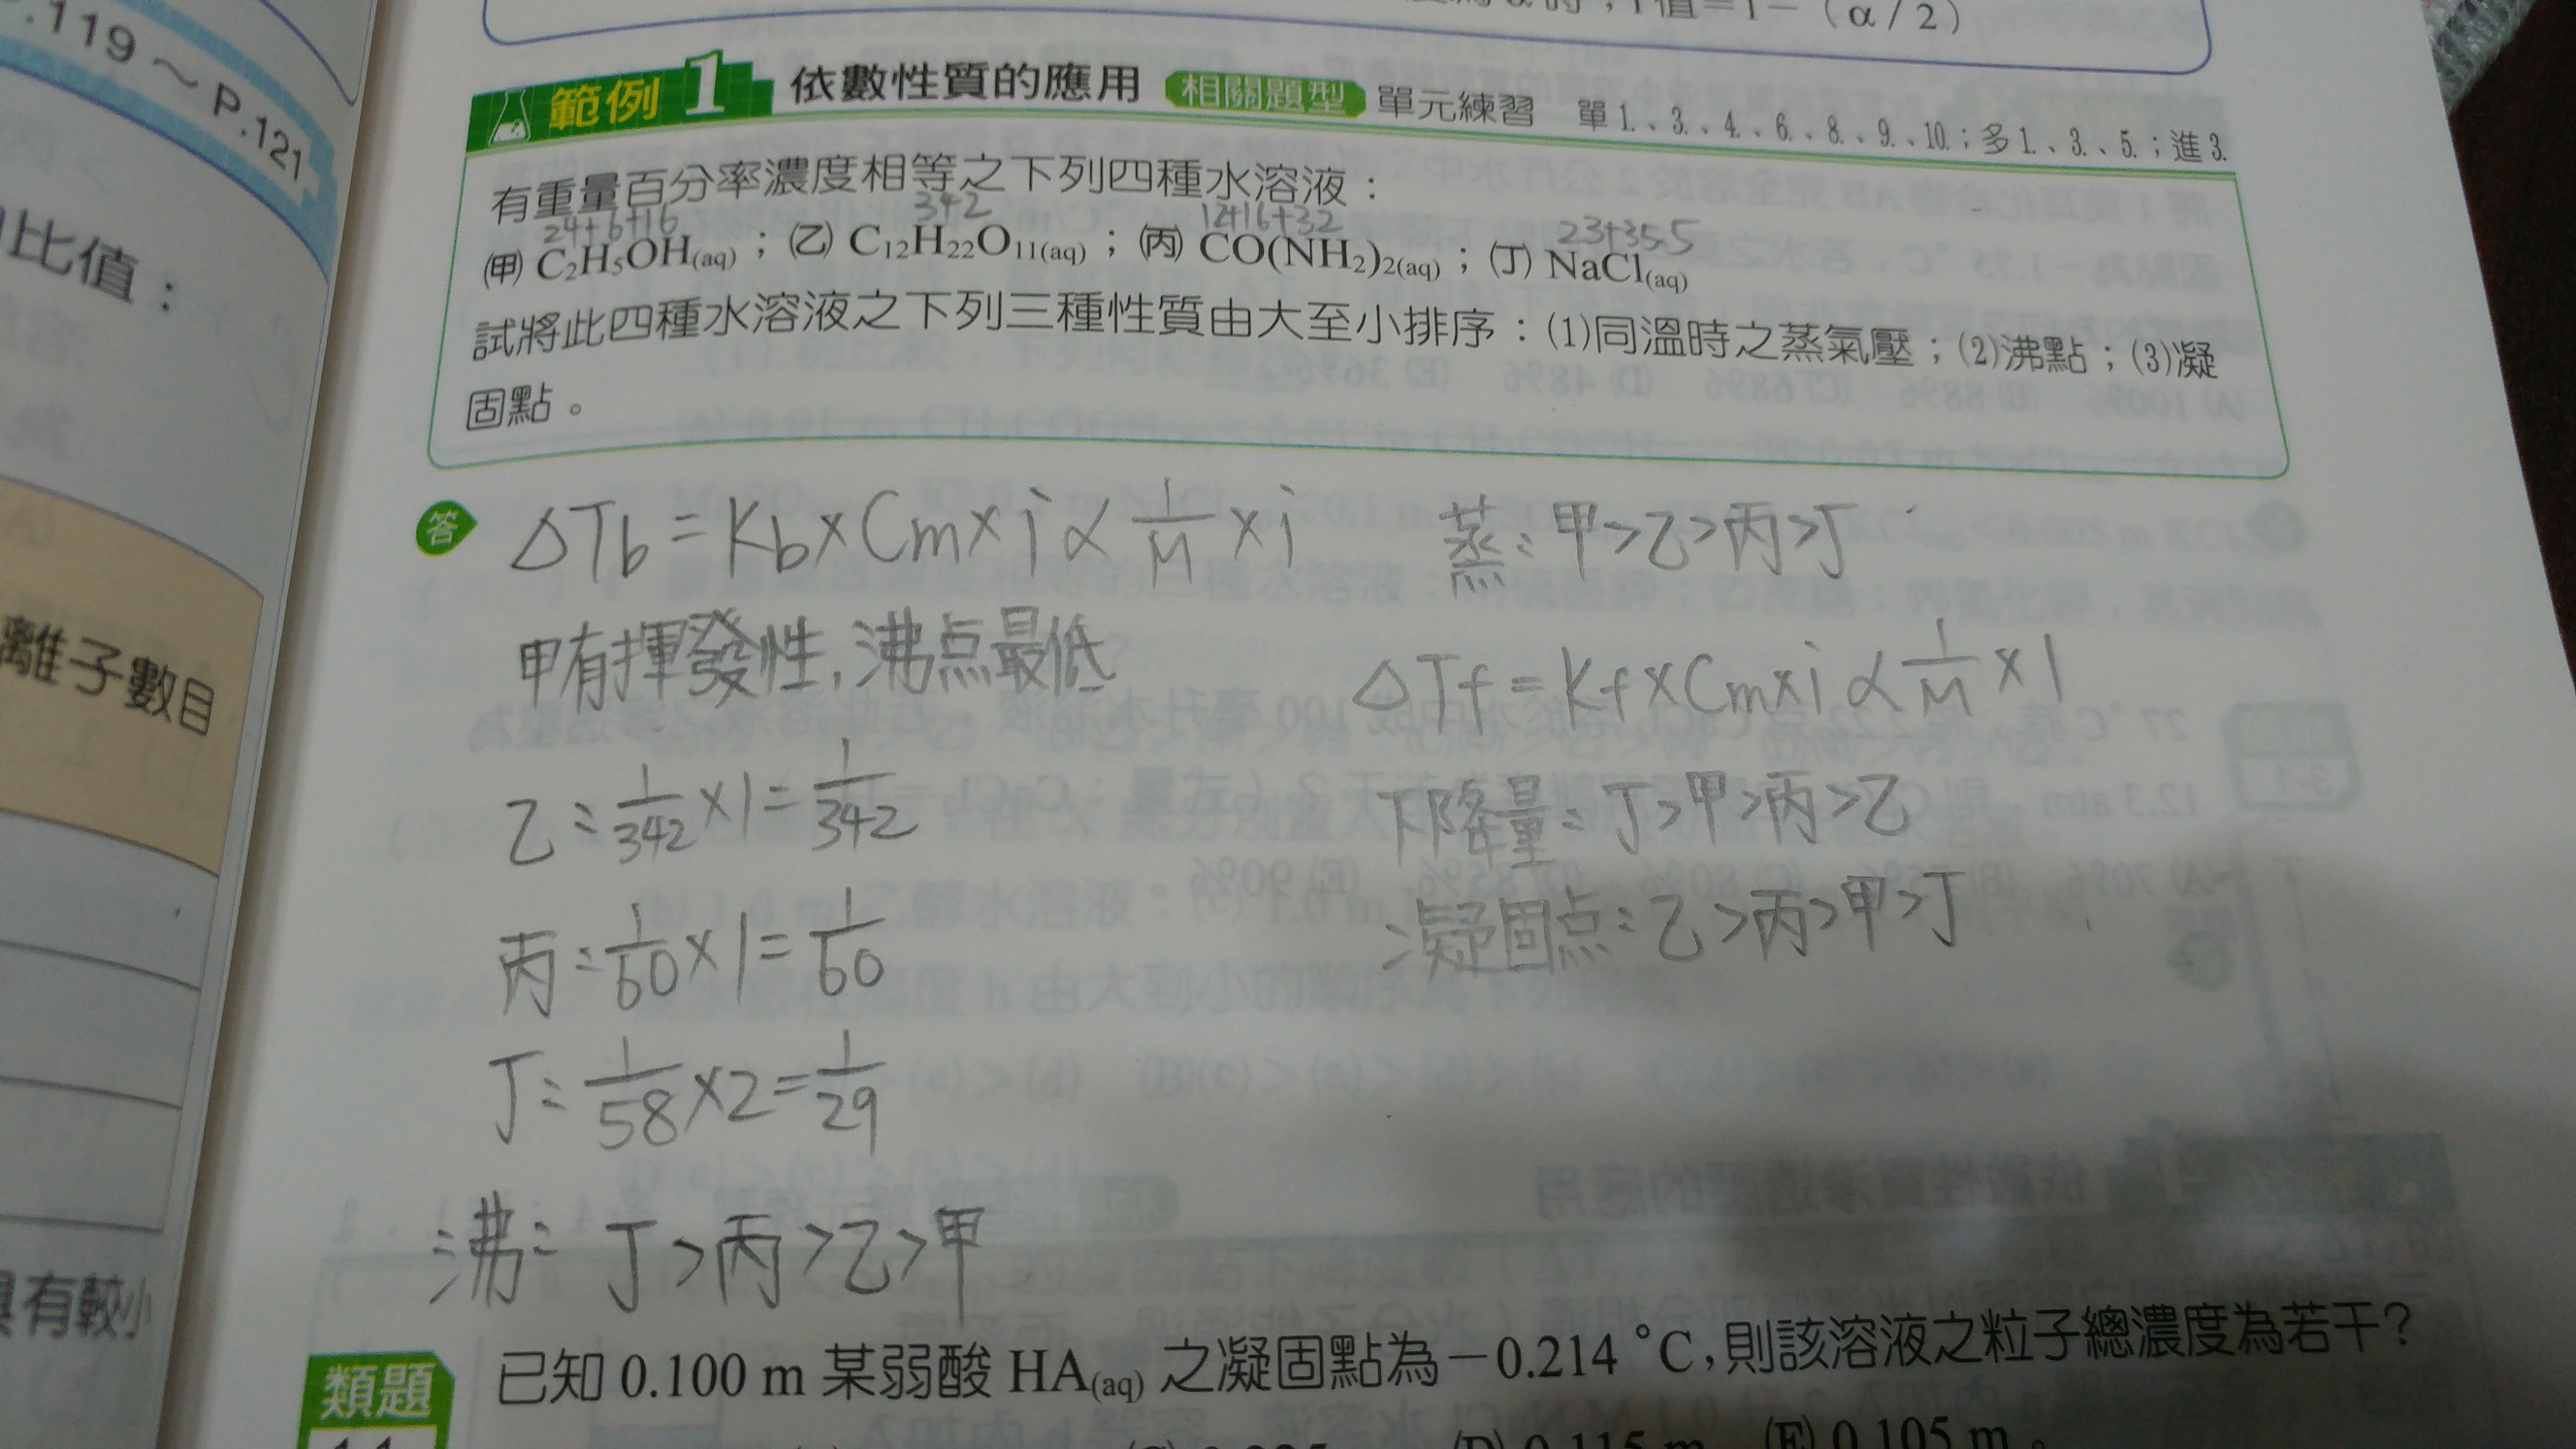 .119～P.121
比值：
離子數目
具有較小
i值＝1－（α/2）
範例 1 依數性質的應用 相關題型 單元練習 單1.、3.、4.、6.、8.、9.、10.；多1.、3.、5.；進3.
有重量百分率濃度相等之下列四種水溶液：
24+6+16 342 12+16+32 23+35.5
(甲) C₂H₅OH(aq)；(乙) C₁₂H₂₂O₁₁(aq)；(丙) CO(NH₂)₂(aq)；(丁) NaCl(aq)
試將此四種水溶液之下列三種性質由大至小排序：(1)同溫時之蒸氣壓；(2)沸點；(3)凝
固點。
答
ΔTb = Kb×Cm×i ∝ 1/M ×i
甲有揮發性，沸点最低
乙：1/342 ×1 = 1/342
丙：1/60 ×1 = 1/60
丁：1/58 ×2 = 1/29
沸：丁>丙>乙>甲
蒸：甲>乙>丙>丁
ΔTf = Kf×Cm×i ∝ 1/M ×i
下降量：丁>甲>丙>乙
凝固点：乙>丙>甲>丁
類題
已知 0.100 m 某弱酸 HA(aq) 之凝固點為－0.214 ˚C，則該溶液之粒子總濃度為若干？
(D) 0.115 m (E) 0.105 m。